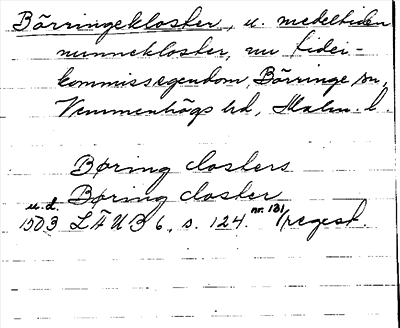 Börringekloster, u. medeltiden
nunnekloster, nu fidei-
kommissegendom, Börringe sn,
Vemmenhögs hd, Malm. l.
Børing closters
u.d. Børing closter
1503 LÄUB 6, s. 124. nr. 131/regest.